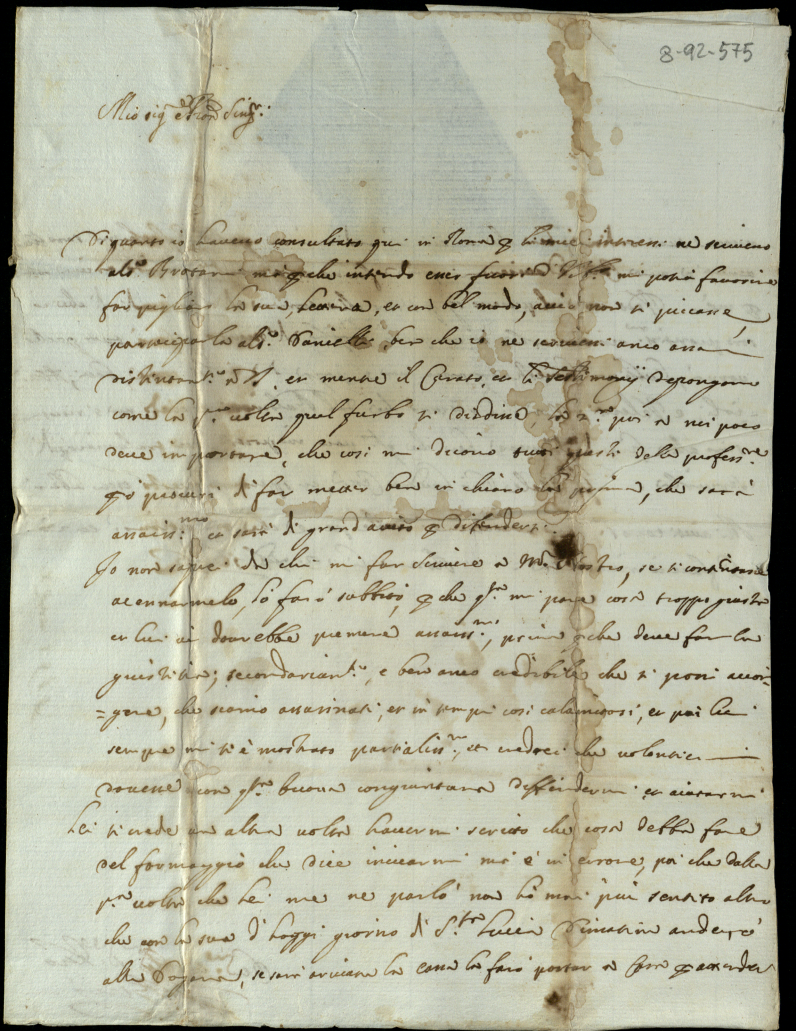 8-92-575
Mio sig.r e Pron Sing.r:
Di quanto io havevo consultato qui in Roma p li miei interessi ne scrivevo
al S.r ma p che intendo esser fuori mi potrà favorire
far pigliar la sua lettera, et con bel modo, acciò non si piccasse,
participarla al S.r Danielli, ben che io ne scrivessi anco assai
distintam.te a V.S. et mentre il Curato, et li Testimonij depongono
come la p.ma volta quel furbo si disdisse, la 2.da poi a noi poco
deve importare, che così mi dicono tutti questi della profess.ne
p ò procuri di far metter ben in chiaro la prima, che sarà
assaiss.mo et sarà di grand'aiuto p difendersi.
Io non saprei da chi mi far scrivere a Nostro, se si contentasse
accennarmelo, lo farò subbito, p che q.sta mi pare cosa troppo giusta
et lui ci dovrebbe premere assaiss.mo, prima p che deve far la
giustitia; secondariam.te, è ben anco credibile che si possi accor=
=gere, che siamo assasinati, et in tempi così calamitosi, et poi lui
sempre mi si è mostrato partialiss.mo, et crederei che volontieri
dovesse con q.sta buona congiuntura diffendermi et aiutarmi
Lei si crede un altra volta havermi scritto che cosa debba fare
del formaggio che dice inviarmi ma è in errore, poi che dalla
p.ma volta che lei me ne parlò non hò mai più sentito altro
che con la sua d'hoggi giorno di S.ta Lucia Dimatina anderò
alla Dogana, se sarà arrivata la cassa la farò portar a Casa p attender